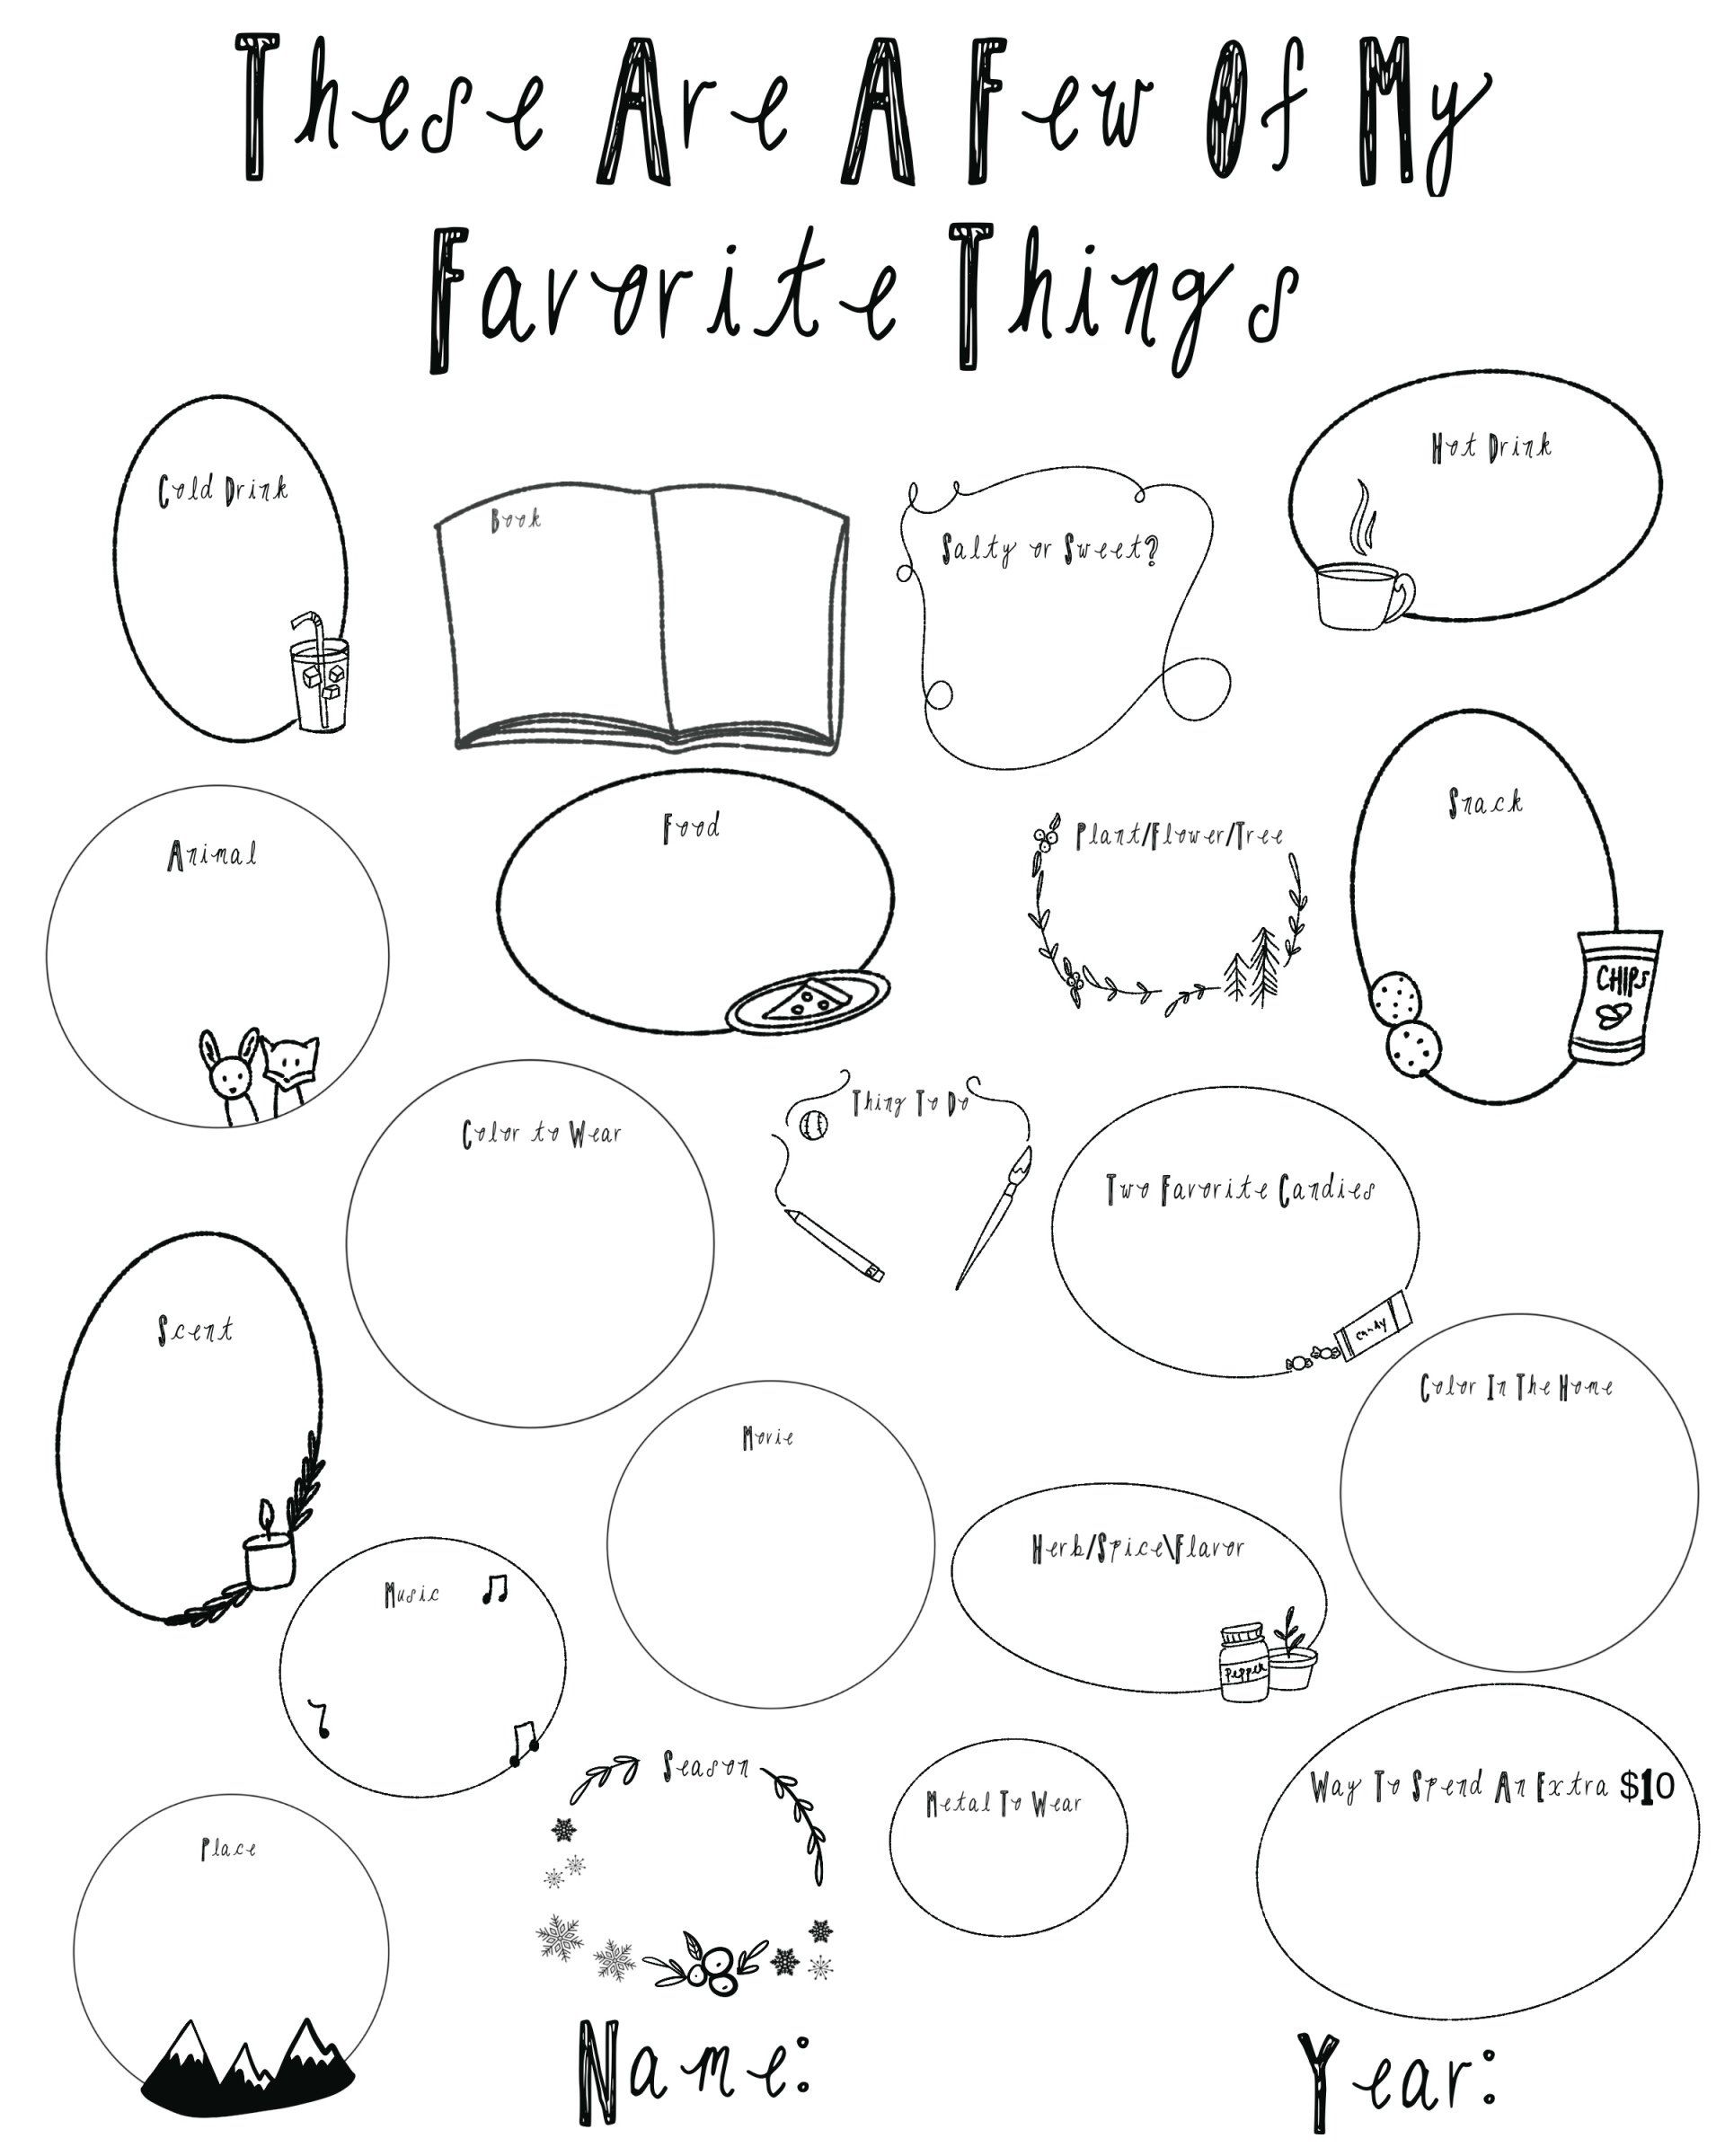 These Are A Few Of My
Favorite Things
Cold Drink
Book
Salty or Sweet?
Hot Drink
Animal
Food
Plant/Flower/Tree
Snack
CHIPS
Color to Wear
Thing To Do
Two Favorite Candies
candy
Scent
Movie
Color In The Home
Music
Herb/Spice\Flavor
pepper
Place
Season
Metal To Wear
Way To Spend An Extra $10
Name:
Year: